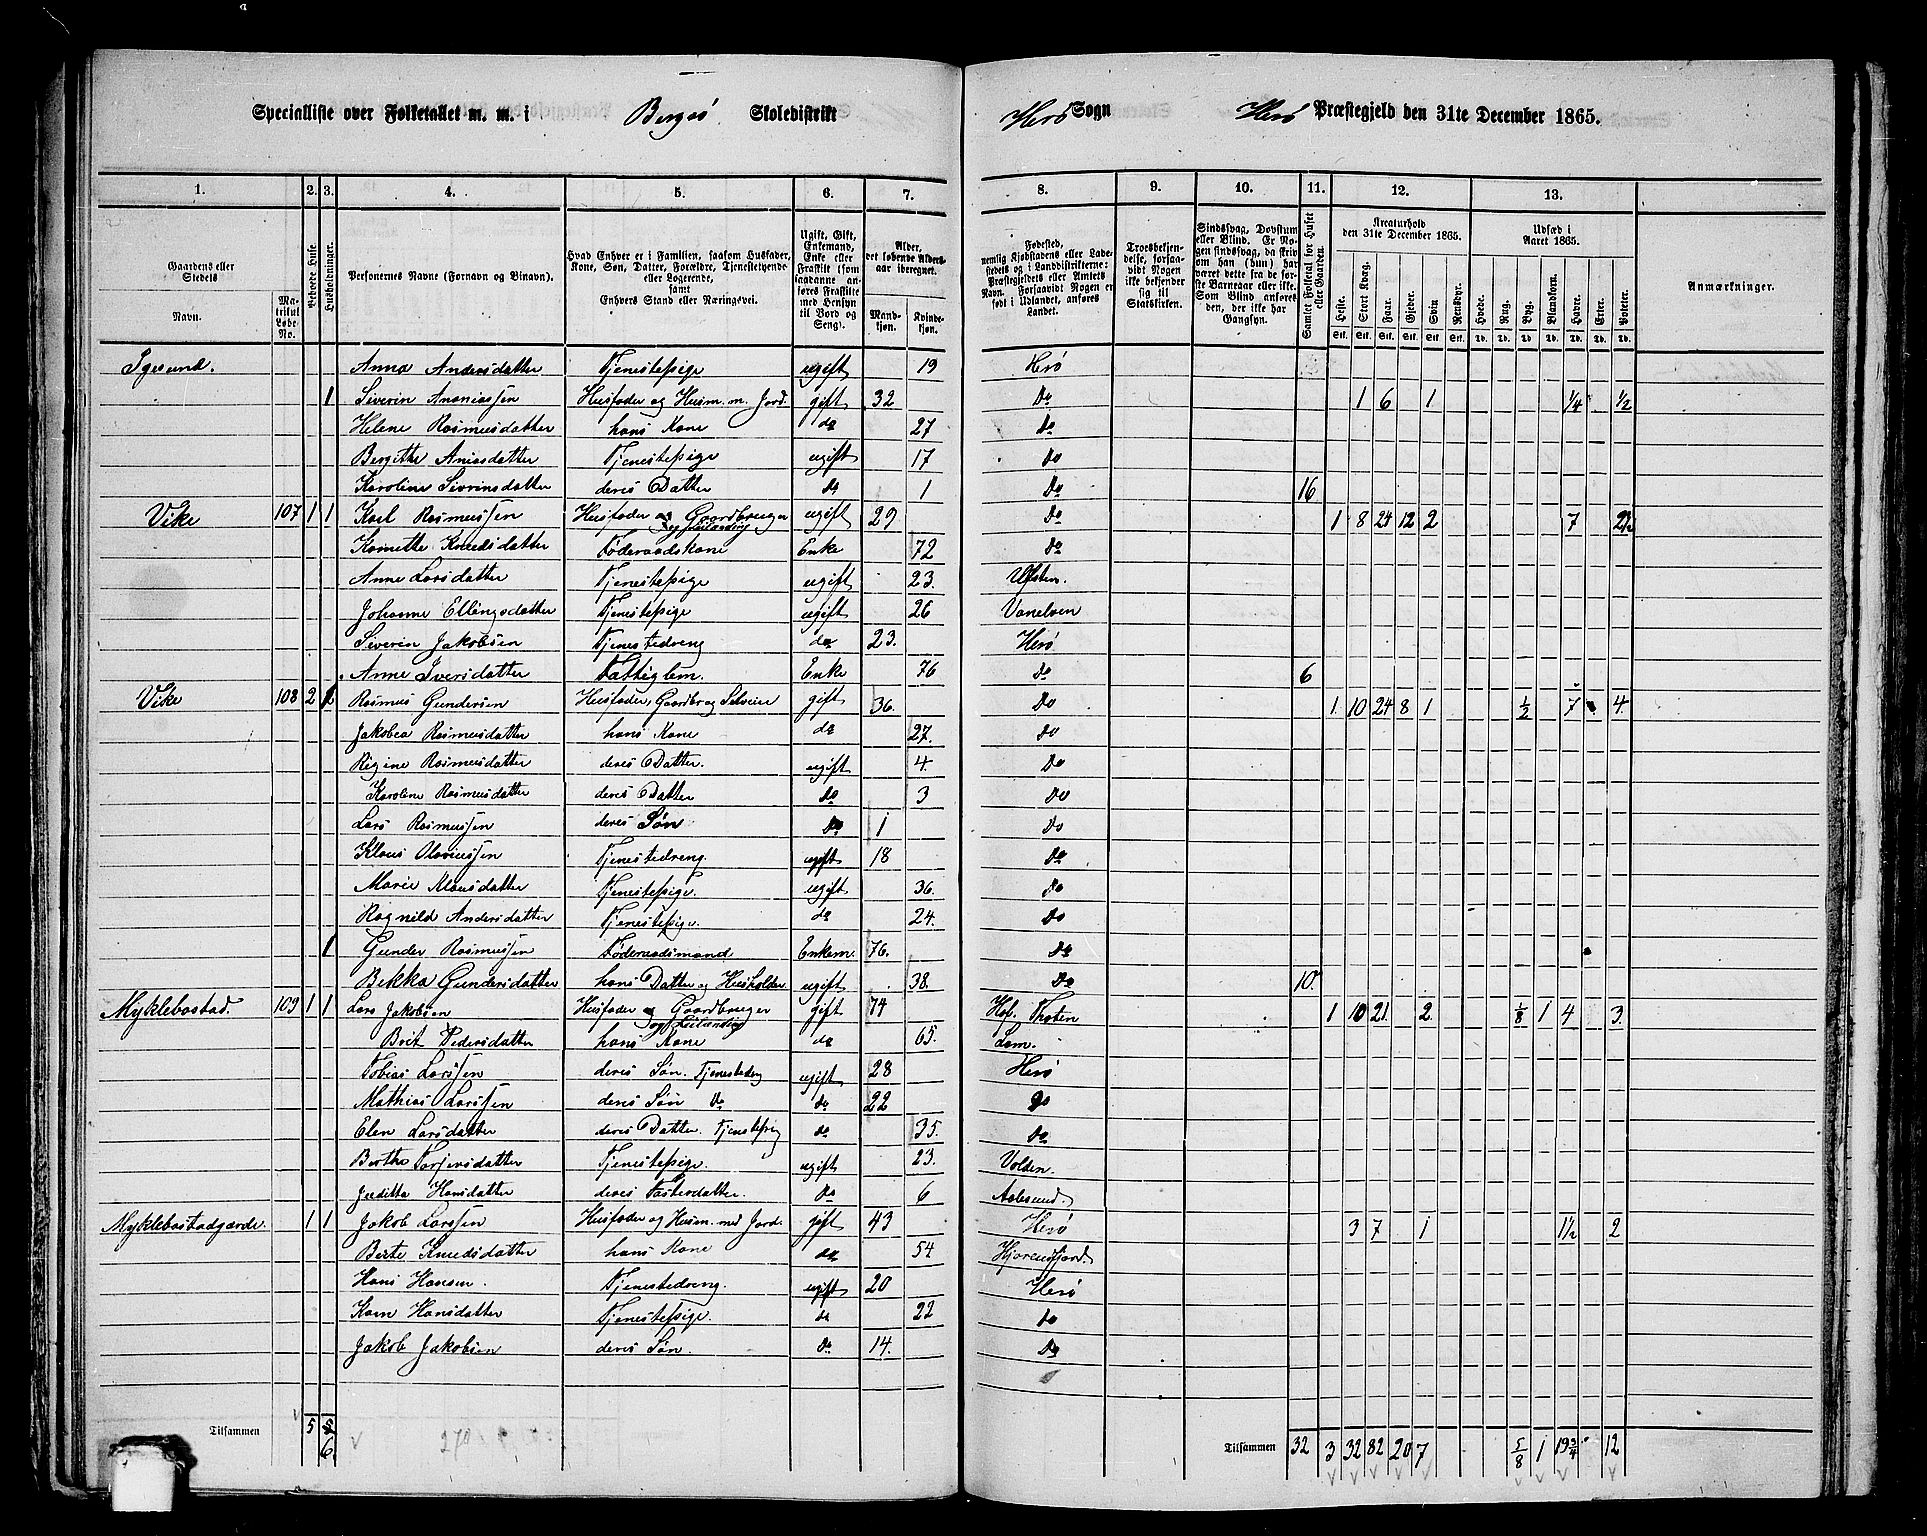 Specialliste over Folketallet m. m. i Bergsö Skoledistrikt Herö Sogn Herö Præstegjeld den 31te December 1865.
1. 2. 3. 4. 5. 6. 7. 8. 9. 10. 11. 12. 13.
Gaardens eller Stedets Navn. Matrikul Løbe-No. Beboede Huse. Husholdninger. Personernes Navne (Fornavn og Binavn). Hvad Enhver er i Familien, saasom Husfader, Kone, Søn, Datter, Forældre, Tjenestetyende eller Logerende, samt Enhvers Stand eller Næringsvei. Ugift, Gift, Enkemand, Enke eller Fraskilt (som saadanne anføres Fraskilte med Hensyn til Bord og Seng). Alder, det løbende Aldersaar iberegnet. Mandkjøn. Kvindekjøn.
Fødested, nemlig Kjøbstadens eller Ladestedets og i Landdistrikterne: Præstegjeldets eller Amtets Navn. Forsaavidt Nogen er født i Udlandet, anføres Landet. Troesbekjendelse, forsaavidt Nogen ikke bekjender sig til Statskirken. Sindssvag, Døvstum eller Blind. Er Nogen sindssvag, da skriv om han (hun) har været dette fra de første Barneaar eller ikke. Som Blind anføres den, der ikke har Gangsyn. Samlet Folketal for Huset eller Gaarden. Kreaturhold den 31te December 1865. Udsæd i Aaret 1865. Anmærkninger.
Heste. Stort Kvæg. Faar. Gjeder. Svin. Rensdyr. Hvede. Rug. Byg. Blandkorn. Havre. Erter. Poteter.
Igesund. Anna Andersdatter Tjenestepige ugift 19 Herö
1 Siverin Ananiassen Husfader og Husm. m. Jord. gift 32 Do 1 6 1 1/4 1/2
Helene Rasmusdatter hans Kone do 27 Do
Bergitte Aniasdatter Tjenestepige ugift 17 Do
Karoline Sivrinsdatter deres Datter Do 1 Do 16
Vike 107 1 1 Karl Rasmussen Husfader og Gaardbruger og Leilænding ugift 29 Do 1 8 24 12 2 7
Kornette Knudsdatter Føderaadskone Enke 72 Do
Anne Larsdatter Tjenestepige ugift 23. Ulfsten.
Johanne Ellingsdatter Tjenestepige ugift 26 Vanelven
Siverin Jakobsen Tjenestedreng do 23. Herö
Anne Iversdatter Fattiglem. Enke 76 Do 6
Vike 108 2 1 Rasmus Gundersen Husfader, Gaardbr og Selveier gift 36. Do 1. 10 24 8 1 1/2 7 4.
Jakobea Rasmusdatter hans Kone do 27. Do
Regine Rasmusdatter deres Datter. ugift 4. Do
Karoline Rasmusdatter deres Datter Do 3 Do
Lars Rasmussen deres Søn Do 1 Do
Klaus Olanussen Tjenestedreng. ugift 18 Do
Marie Klausdatter Tjenestepige. ugift 36. Do
Ragnild Andersdatter Tjenestepige. do 24. Do
1 Gunder Rasmussen Føderaadsmand Enkem. 76. Do
Bekka Gundersdatter hans Datter og Husholder ugift 38. Do 10.
Myklebostad. 109 1 1 Lars Jakobsen Husfader og Gaardbruger og Leilænding gift 74 Thoten 1 10 21 2. 1/8 1 4 3.
Brit Pedersdatter hans Kone do 65. Lom.
Tobias Larssen deres Søn. Tjenestedrg ugift 28 Herö
Mathias Larssen deres Søn Do do 22 Do
Elen Larsdatter deres Datter. Tjenestepig do 35. Do
Berthe Torjersdatter Tjenestepige. ugift 23. Volden.
Juditta Hansdatter deres Fosterdatter. Do 6 Aalesund.
Myklebostadgærde. 1 1 Jakob Larssen Husfader og Husm. med Jord. gift 43 Herö 3 7 1 1 1/2 2
Berte Knudsdatter hans Kone do 54 Hjorendfjord.
Hans Hansen. Tjenestedreng. ugift 20 Herö
Karn Hansdatter Tjenestepige. do 22 do
Jakob Jakobsen deres Søn. Do 14. Do
Tilsammen 5 6. Tilsammen 32 3 32 82 20 7 5/8 1 19 3/4 12